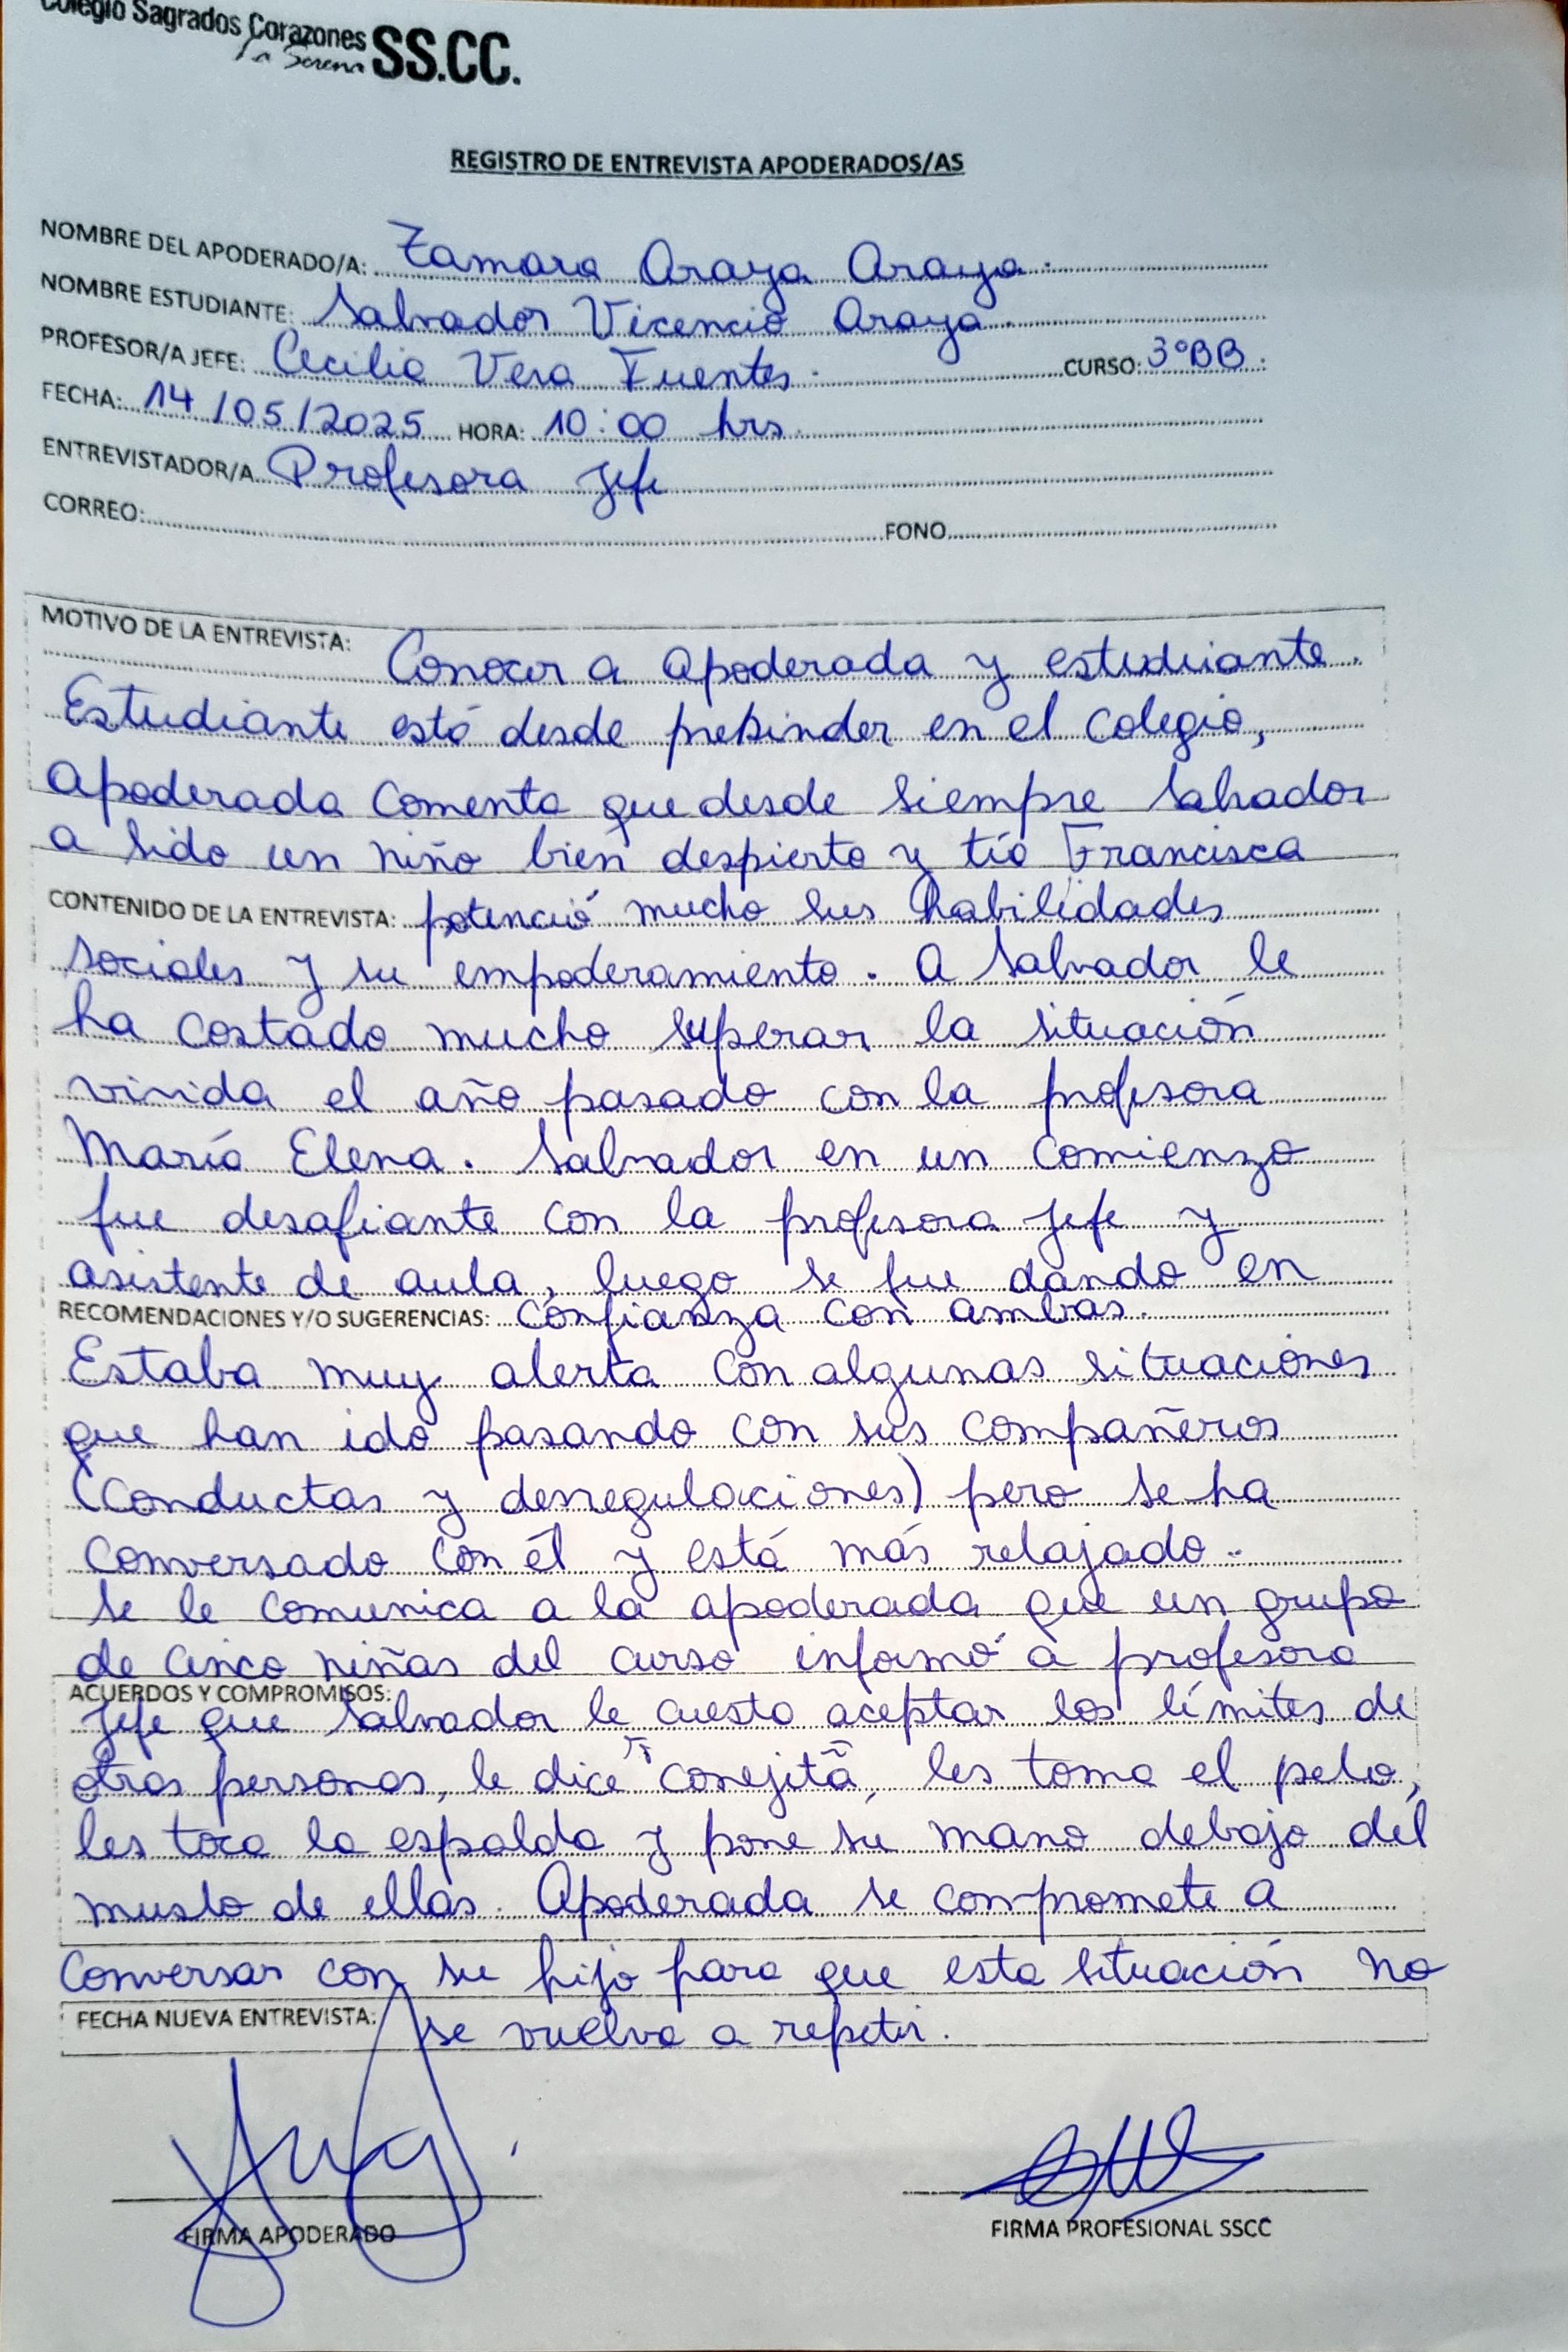 Colegio Sagrados Corazones
La Serena SS.CC.
REGISTRO DE ENTREVISTA APODERADOS/AS
NOMBRE DEL APODERADO/A: Tamara Araya Araya.
NOMBRE ESTUDIANTE: Salvador Vicencio Araya.
PROFESOR/A JEFE: Cecilia Vera Fuentes. CURSO: 3°BB.
FECHA: 14/05/2025 HORA: 10:00 hrs.
ENTREVISTADOR/A Profesora Jefe
CORREO: FONO
MOTIVO DE LA ENTREVISTA: Conocer a apoderada y estudiante.
Estudiante está desde prekinder en el colegio,
apoderada comenta que desde siempre Salvador
a sido un niño bien despierto y tía Francisca
CONTENIDO DE LA ENTREVISTA: potenció mucho sus habilidades
sociales y su empoderamiento. A Salvador le
ha costado mucho superar la situación
vivida el año pasado con la profesora
María Elena. Salvador en un comienzo
fue desafiante con la profesora jefe y
asistente de aula, luego se fue dando en
RECOMENDACIONES Y/O SUGERENCIAS: confianza con ambas.
Estaba muy alerta con algunas situaciones
que han ido pasando con sus compañeros
(conductas y desregulaciones) pero se ha
conversado con él y está más relajado.
Se le comunica a la apoderada que un grupo
de cinco niñas del curso informó a profesora
ACUERDOS Y COMPROMISOS:
jefe que Salvador le cuesta aceptar los límites de
otras personas, le dice "conejita", les toma el pelo,
les toca la espalda y pone su mano debajo del
muslo de ellas. Apoderada se compromete a
conversar con su hijo para que esta situación no
FECHA NUEVA ENTREVISTA: se vuelva a repetir.
FIRMA APODERADO
FIRMA PROFESIONAL SSCC